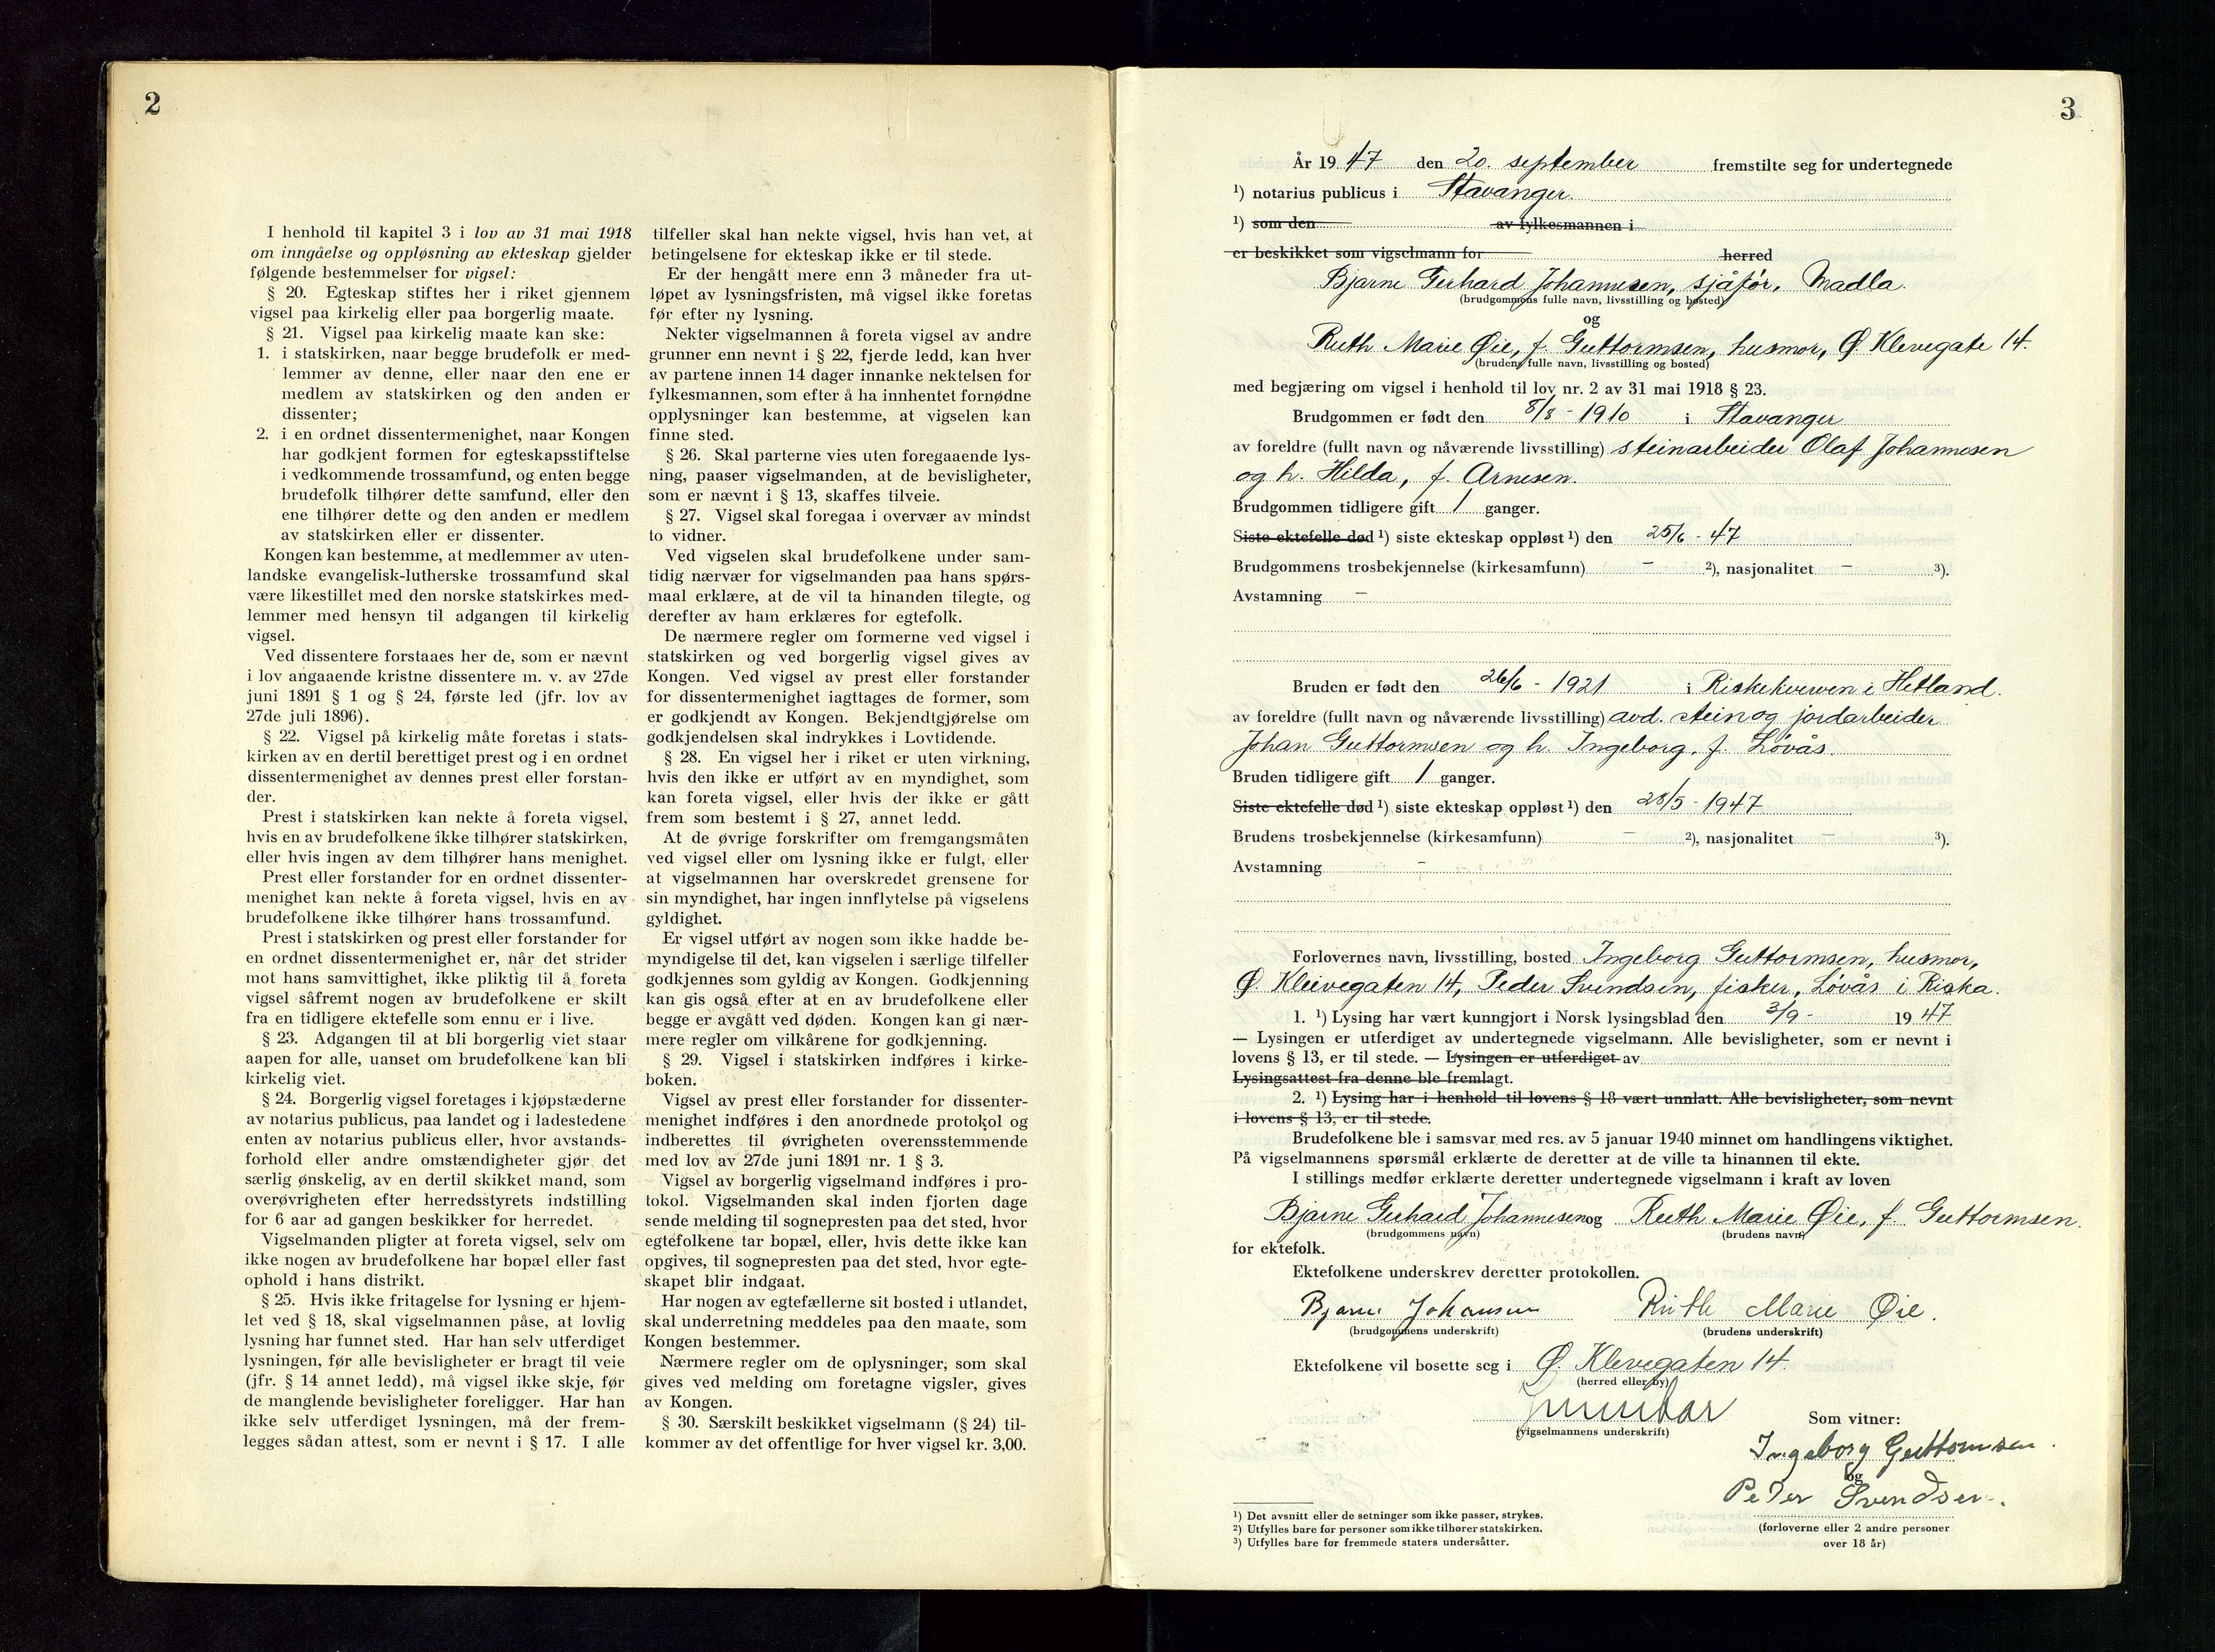 2
I henhold til kapitel 3 i lov av 31 mai 1918
om inngåelse og oppløsning av ekteskap gjelder
følgende bestemmelser for vigsel:
§ 20. Egteskap stiftes her i riket gjennem
vigsel paa kirkelig eller paa borgerlig maate.
§ 21. Vigsel paa kirkelig maate kan ske:
1. i statskirken, naar begge brudefolk er med-
lemmer av denne, eller naar den ene er
medlem av statskirken og den anden er
dissenter;
2. i en ordnet dissentermenighet, naar Kongen
har godkjent formen for egteskapsstiftelse
i vedkommende trossamfund, og enten begge
brudefolk tilhører dette samfund, eller den
ene tilhører dette og den anden er medlem
av statskirken eller er dissenter.
Kongen kan bestemme, at medlemmer av uten-
landske evangelisk-lutherske trossamfund skal
være likestillet med den norske statskirkes med-
lemmer med hensyn til adgangen til kirkelig
vigsel.
Ved dissentere forstaaes her de, som er nævnt
i lov angaaende kristne dissentere m. v. av 27de
juni 1891 § 1 og § 24, første led (jfr. lov av
27de juli 1896).
§ 22. Vigsel på kirkelig måte foretas i stats-
kirken av en dertil berettiget prest og i en ordnet
dissentermenighet av dennes prest eller forstan-
der.
Prest i statskirken kan nekte å foreta vigsel,
hvis en av brudefolkene ikke tilhører statskirken,
eller hvis ingen av dem tilhører hans menighet.
Prest eller forstander for en ordnet dissenter-
menighet kan nekte å foreta vigsel, hvis en av
brudefolkene ikke tilhører hans trossamfund.
Prest i statskirken og prest eller forstander for
en ordnet dissentermenighet er, når det strider
mot hans samvittighet, ikke pliktig til å foreta
vigsel såfremt nogen av brudefolkene er skilt
fra en tidligere ektefelle som ennu er i live.
§ 23. Adgangen til at bli borgerlig viet staar
aapen for alle, uanset om brudefolkene kan bli
kirkelig viet.
§ 24. Borgerlig vigsel foretages i kjøpstæderne
av notarius publicus, paa landet og i ladestedene
enten av notarius publicus eller, hvor avstands-
forhold eller andre omstændigheter gjør det
særlig ønskelig, av en dertil skikket mand, som
overøvrigheten efter herredsstyrets indstilling
for 6 aar ad gangen beskikker for herredet.
Vigselmanden pligter at foreta vigsel, selv om
ikke nogen av brudefolkene har bopæl eller fast
ophold i hans distrikt.
§ 25. Hvis ikke fritagelse for lysning er hjem-
let ved § 18, skal vigselmannen påse, at lovlig
lysning har funnet sted. Har han selv utferdiget
lysningen, før alle bevisligheter er bragt til veie
(jfr. § 14 annet ledd), må vigsel ikke skje, før
de manglende bevisligheter foreligger. Har han
ikke selv utferdiget lysningen, må der frem-
legges sådan attest, som er nevnt i § 17. I alle
tilfeller skal han nekte vigsel, hvis han vet, at
betingelsene for ekteskap ikke er til stede.
Er der hengått mere enn 3 måneder fra ut-
løpet av lysningsfristen, må vigsel ikke foretas
før efter ny lysning.
Nekter vigselmannen å foreta vigsel av andre
grunner enn nevnt i § 22, fjerde ledd, kan hver
av partene innen 14 dager innanke nektelsen for
fylkesmannen, som efter å ha innhentet fornødne
opplysninger kan bestemme, at vigselen kan
finne sted.
§ 26. Skal parterne vies uten foregaaende lys-
ning, paaser vigselmanden, at de bevisligheter,
som er nævnt i § 13, skaffes tilveie.
§ 27. Vigsel skal foregaa i overvær av mindst
to vidner.
Ved vigselen skal brudefolkene under sam-
tidig nærvær for vigselmanden paa hans spørs-
maal erklære, at de vil ta hinanden tilegte, og
derefter av ham erklæres for egtefolk.
De nærmere regler om formerne ved vigsel i
statskirken og ved borgerlig vigsel gives av
Kongen. Ved vigsel av prest eller forstander
for dissentermenighet iagttages de former, som
er godkjendt av Kongen. Bekjendtgjørelse om
godkjendelsen skal indrykkes i Lovtidende.
§ 28. En vigsel her i riket er uten virkning,
hvis den ikke er utført av en myndighet, som
kan foreta vigsel, eller hvis der ikke er gått
frem som bestemt i § 27, annet ledd.
At de øvrige forskrifter om fremgangsmåten
ved vigsel eller om lysning ikke er fulgt, eller
at vigselmannen har overskredet grensene for
sin myndighet, har ingen innflytelse på vigselens
gyldighet.
Er vigsel utført av nogen som ikke hadde be-
myndigelse til det, kan vigselen i særlige tilfeller
godkjennes som gyldig av Kongen. Godkjenning
kan gis også efter at en av brudefolkene eller
begge er avgått ved døden. Kongen kan gi nær-
mere regler om vilkårene for godkjenning.
§ 29. Vigsel i statskirken indføres i kirke-
boken.
Vigsel av prest eller forstander for dissenter-
menighet indføres i den anordnede protokol og
indberettes til øvrigheten overensstemmende
med lov av 27de juni 1891 nr. 1 § 3.
Vigsel av borgerlig vigselmand indføres i pro-
tokol. Vigselmanden skal inden fjorten dage
sende melding til sognepresten paa det sted, hvor
egtefolkene tar bopæl, eller, hvis dette ikke kan
opgives, til sognepresten paa det sted, hvor egte-
skapet blir indgaat.
Har nogen av egtefællerne sit bosted i utlandet,
skal underretning meddeles paa den maate, som
Kongen bestemmer.
Nærmere regler om de oplysninger, som skal
gives ved melding om foretagne vigsler, gives
av Kongen.
§ 30. Særskilt beskikket vigselmann (§ 24) til-
kommer av det offentlige for hver vigsel kr. 3,00.
3
År 1947 den 20. september fremstilte seg for undertegnede
1) notarius publicus i Stavanger.
1) som den av fylkesmannen i
er beskikket som vigselmann for herred
Bjarne Gerhard Johannesen, sjåfør, Madla.
(brudgommens fulle navn, livsstilling og bosted)
og
Ruth Marie Øie, f. Guttormsen, husmor, Ø. Klevegate 14.
(brudens fulle navn, livsstilling og bosted)
med begjæring om vigsel i henhold til lov nr. 2 av 31 mai 1918 § 23.
Brudgommen er født den 8/8 - 1910 i Stavanger
av foreldre (fullt navn og nåværende livsstilling) steinarbeider Olaf Johannesen
og h. Hilda, f. Arnesen.
Brudgommen tidligere gift 1 ganger.
Siste ektefelle død 1) siste ekteskap oppløst 1) den 25/6 - 47
Brudgommens trosbekjennelse (kirkesamfunn) - 2), nasjonalitet - 3).
Avstamning -
Bruden er født den 26/6 - 1921 i Riskekverven i Hetland.
av foreldre (fullt navn og nåværende livsstilling) avd. stein og jordarbeider
Johan Guttormsen og h. Ingeborg, f. Løvås.
Bruden tidligere gift 1 ganger.
Siste ektefelle død 1) siste ekteskap oppløst 1) den 28/5 - 1947
Brudens trosbekjennelse (kirkesamfunn) - 2), nasjonalitet - 3).
Avstamning -
Forlovernes navn, livsstilling, bosted Ingeborg Guttormsen, husmor,
Ø. Kleivegaten 14, Peder Svendsen, fisker, Løvås i Riska.
1. 1) Lysing har vært kunngjort i Norsk lysingsblad den 3/9 - 1947
— Lysingen er utferdiget av undertegnede vigselmann. Alle bevisligheter, som er nevnt i
lovens § 13, er til stede. — Lysingen er utferdiget av
Lysingsattest fra denne ble fremlagt.
2. 1) Lysing har i henhold til lovens § 18 vært unnlatt. Alle bevisligheter, som nevnt
i lovens § 13, er til stede.
Brudefolkene ble i samsvar med res. av 5 januar 1940 minnet om handlingens viktighet.
På vigselmannens spørsmål erklærte de deretter at de ville ta hinannen til ekte.
I stillings medfør erklærte deretter undertegnede vigselmann i kraft av loven
Bjarne Gerhard Johannesen og Ruth Marie Øie, f. Guttormsen.
(brudgommens navn) (brudens navn)
for ektefolk.
Ektefolkene underskrev deretter protokollen.
Bjarne Johansen Ruth Marie Øie.
(brudgommens underskrift) (brudens underskrift)
Ektefolkene vil bosette seg i Ø. Klevegaten 14.
(herred eller by)
(vigselmannens underskrift)
Som vitner:
Ingeborg Guttormsen.
og
Peder Svendsen.
(forloverne eller 2 andre personer
over 18 år)
1) Det avsnitt eller de setninger som ikke passer, strykes.
2) Utfylles bare for personer som ikke tilhører statskirken.
3) Utfylles bare for fremmede staters undersåtter.